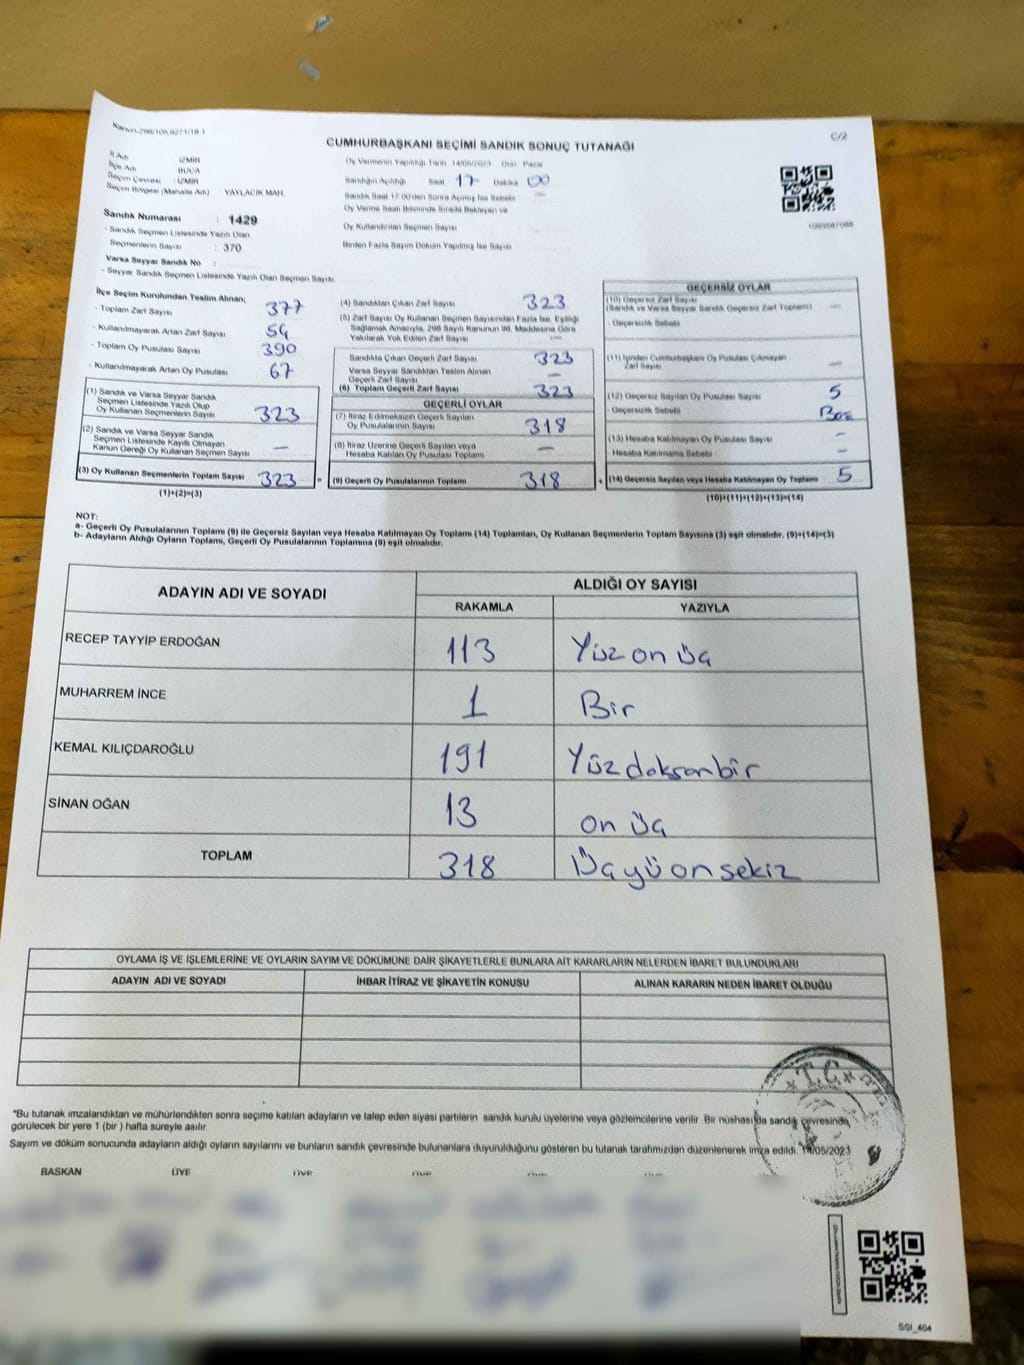 Kanun:298/105,6271/18-1
C/2
CUMHURBAŞKANI SEÇİMİ SANDIK SONUÇ TUTANAĞI
İl Adı : İZMİR
İlçe Adı : BUCA
Seçim Çevresi : İZMİR
Seçim Bölgesi (Mahalle Adı) YAYLACIK MAH.
Sandık Numarası : 1429
- Sandık Seçmen Listesinde Yazılı Olan
Seçmenlerin Sayısı : 370
Varsa Seyyar Sandık No :
- Seyyar Sandık Seçmen Listesinde Yazılı Olan Seçmen Sayısı
Oy Vermenin Yapıldığı Tarih 14/05/2023 Gün Pazar
Sandığın Açıldığı Saat 17 Dakika 00
Sandık Saat 17:00'den Sonra Açılmış İse Sebebi
Oy Verme Saati Bitiminde Sırada Bekleyen ve
Oy Kullandırılan Seçmen Sayısı
Birden Fazla Sayım Döküm Yapılmış İse Sayısı
İlçe Seçim Kurulundan Teslim Alınan;
- Toplam Zarf Sayısı 377
- Kullanılmayarak Artan Zarf Sayısı 54
- Toplam Oy Pusulası Sayısı 390
- Kullanılmayarak Artan Oy Pusulası 67
(1) Sandık ve Varsa Seyyar Sandık
Seçmen Listesinde Yazılı Olup
Oy Kullanan Seçmenlerin Sayısı 323
(2) Sandık ve Varsa Seyyar Sandık
Seçmen Listesinde Kayıtlı Olmayan
Kanun Gereği Oy Kullanan Seçmen Sayısı —
(3) Oy Kullanan Seçmenlerin Toplam Sayısı 323 =
(1)+(2)=(3)
(4) Sandıktan Çıkan Zarf Sayısı 323
(5) Zarf Sayısı Oy Kullanan Seçmen Sayısından Fazla İse, Eşitliği
Sağlamak Amacıyla, 298 Sayılı Kanunun 98. Maddesine Göre
Yakılarak Yok Edilen Zarf Sayısı —
Sandıkta Çıkan Geçerli Zarf Sayısı 323
Varsa Seyyar Sandıktan Teslim Alınan
Geçerli Zarf Sayısı —
(6) Toplam Geçerli Zarf Sayısı 323
GEÇERLİ OYLAR
(7) İtiraz Edilmeksizin Geçerli Sayılan
Oy Pusulalarının Sayısı 318
(8) İtiraz Üzerine Geçerli Sayılan veya
Hesaba Katılan Oy Pusulası Toplamı —
(9) Geçerli Oy Pusulalarının Toplamı 318 +
GEÇERSİZ OYLAR
(10) Geçersiz Zarf Sayısı —
(Sandık ve Varsa Seyyar Sandık Geçersiz Zarf Toplamı)
- Geçersizlik Sebebi
(11) İçinden Cumhurbaşkanı Oy Pusulası Çıkmayan
Zarf Sayısı —
(12) Geçersiz Sayılan Oy Pusulası Sayısı 5
- Geçersizlik Sebebi
(13) Hesaba Katılmayan Oy Pusulası Sayısı —
- Hesaba Katılmama Sebebi —
(14) Geçersiz Sayılan veya Hesaba Katılmayan Oy Toplamı 5
(10)+(11)+(12)+(13)=(14)
NOT:
a- Geçerli Oy Pusulalarının Toplamı (9) ile Geçersiz Sayılan veya Hesaba Katılmayan Oy Toplamı (14) Toplamları, Oy Kullanan Seçmenlerin Toplam Sayısına (3) eşit olmalıdır. (9)+(14)=(3)
b- Adayların Aldığı Oyların Toplamı, Geçerli Oy Pusulalarının Toplamına (9) eşit olmalıdır.
ADAYIN ADI VE SOYADI ALDIĞI OY SAYISI
RAKAMLA YAZIYLA
RECEP TAYYİP ERDOĞAN 113 Yüz on üç
MUHARREM İNCE 1 Bir
KEMAL KILIÇDAROĞLU 191 Yüz doksan bir
SİNAN OĞAN 13 on üç
TOPLAM 318 Üç yü on sekiz
OYLAMA İŞ VE İŞLEMLERİNE VE OYLARIN SAYIM VE DÖKÜMÜNE DAİR ŞİKAYETLERLE BUNLARA AİT KARARLARIN NELERDEN İBARET BULUNDUKLARI
ADAYIN ADI VE SOYADI İHBAR İTİRAZ VE ŞİKAYETİN KONUSU ALINAN KARARIN NEDEN İBARET OLDUĞU
T.C.
*Bu tutanak imzalandıktan ve mühürlendikten sonra seçime katılan adayların ve talep eden siyasi partilerin sandık kurulu üyelerine veya gözlemcilerine verilir. Bir nüshası da sandık çevresinde,
görülecek bir yere 1 (bir) hafta süreyle asılır.
Sayım ve döküm sonucunda adayların aldığı oyların sayılarını ve bunların sandık çevresinde bulunanlara duyurulduğunu gösteren bu tutanak tarafımızdan düzenlenerek imza edildi. 14/05/2023
BAŞKAN ÜYE ÜYE ÜYE ÜYE ÜYE
SGI_404